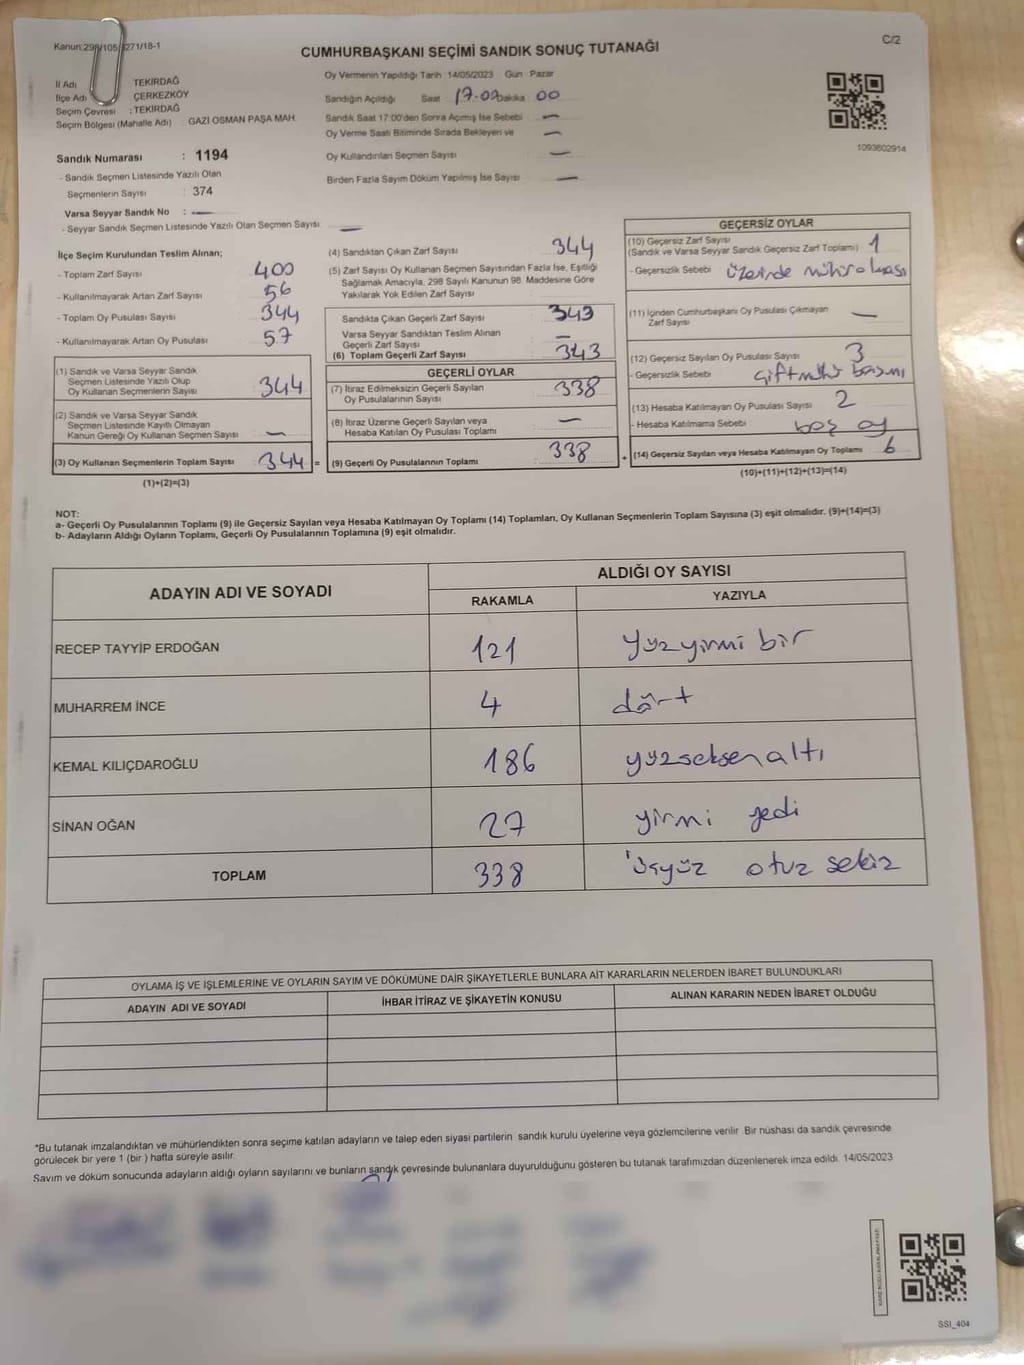 Kanun:298/105 271/18-1
C/2
CUMHURBAŞKANI SEÇİMİ SANDIK SONUÇ TUTANAĞI
İl Adı TEKİRDAĞ
İlçe Adı ÇERKEZKÖY
Seçim Çevresi : TEKİRDAĞ
Seçim Bölgesi (Mahalle Adı) GAZİ OSMAN PAŞA MAH.
Sandık Numarası : 1194
- Sandık Seçmen Listesinde Yazılı Olan
Seçmenlerin Sayısı : 374
Varsa Seyyar Sandık No : —
- Seyyar Sandık Seçmen Listesinde Yazılı Olan Seçmen Sayısı —
Oy Vermenin Yapıldığı Tarih 14/05/2023 Gün Pazar
Sandığın Açıldığı Saat 17.00 Dakika 00
Sandık Saat 17:00'den Sonra Açımış İse Sebebi —
Oy Verme Saati Bitiminde Sırada Bekleyen ve —
Oy Kullandırılan Seçmen Sayısı —
Birden Fazla Sayım Döküm Yapılmış İse Sayısı —
1093802914
İlçe Seçim Kurulundan Teslim Alınan;
- Toplam Zarf Sayısı 400
- Kullanılmayarak Artan Zarf Sayısı 56
- Toplam Oy Pusulası Sayısı 344
- Kullanılmayarak Artan Oy Pusulası 57
(1) Sandık ve Varsa Seyyar Sandık
Seçmen Listesinde Yazılı Olup
Oy Kullanan Seçmenlerin Sayısı 344
(2) Sandık ve Varsa Seyyar Sandık
Seçmen Listesinde Kayıtlı Olmayan
Kanun Gereği Oy Kullanan Seçmen Sayısı —
(3) Oy Kullanan Seçmenlerin Toplam Sayısı 344 =
(1)+(2)=(3)
(4) Sandıktan Çıkan Zarf Sayısı 344
(5) Zarf Sayısı Oy Kullanan Seçmen Sayısından Fazla İse, Eşitliği
Sağlamak Amacıyla, 298 Sayılı Kanunun 98. Maddesine Göre
Yakılarak Yok Edilen Zarf Sayısı
Sandıkta Çıkan Geçerli Zarf Sayısı 343
Varsa Seyyar Sandıktan Teslim Alınan
Geçerli Zarf Sayısı —
(6) Toplam Geçerli Zarf Sayısı 343
GEÇERLİ OYLAR
(7) İtiraz Edilmeksizin Geçerli Sayılan
Oy Pusulalarının Sayısı 338
(8) İtiraz Üzerine Geçerli Sayılan veya
Hesaba Katılan Oy Pusulası Toplamı —
(9) Geçerli Oy Pusulalarının Toplamı 338 +
GEÇERSİZ OYLAR
(10) Geçersiz Zarf Sayısı
(Sandık ve Varsa Seyyar Sandık Geçersiz Zarf Toplamı) 1
- Geçersizlik Sebebi üzerinde mühür olması
(11) İçinden Cumhurbaşkanı Oy Pusulası Çıkmayan
Zarf Sayısı —
(12) Geçersiz Sayılan Oy Pusulası Sayısı 3
- Geçersizlik Sebebi çift mühür basımı
(13) Hesaba Katılmayan Oy Pusulası Sayısı 2
- Hesaba Katılmama Sebebi boş oy
(14) Geçersiz Sayılan veya Hesaba Katılmayan Oy Toplamı 6
(10)+(11)+(12)+(13)=(14)
NOT:
a- Geçerli Oy Pusulalarının Toplamı (9) ile Geçersiz Sayılan veya Hesaba Katılmayan Oy Toplamı (14) Toplamları, Oy Kullanan Seçmenlerin Toplam Sayısına (3) eşit olmalıdır. (9)+(14)=(3)
b- Adayların Aldığı Oyların Toplamı, Geçerli Oy Pusulalarının Toplamına (9) eşit olmalıdır.
ADAYIN ADI VE SOYADI
ALDIĞI OY SAYISI
RAKAMLA YAZIYLA
RECEP TAYYİP ERDOĞAN 121 yüzyirmi bir
MUHARREM İNCE 4 dört
KEMAL KILIÇDAROĞLU 186 yüzseksenaltı
SİNAN OĞAN 27 yirmi yedi
TOPLAM 338 üçyüz otuz sekiz
OYLAMA İŞ VE İŞLEMLERİNE VE OYLARIN SAYIM VE DÖKÜMÜNE DAİR ŞİKAYETLERLE BUNLARA AİT KARARLARIN NELERDEN İBARET BULUNDUKLARI
ADAYIN ADI VE SOYADI İHBAR İTİRAZ VE ŞİKAYETİN KONUSU ALINAN KARARIN NEDEN İBARET OLDUĞU
*Bu tutanak imzalandıktan ve mühürlendikten sonra seçime katılan adayların ve talep eden siyasi partilerin sandık kurulu üyelerine veya gözlemcilerine verilir. Bir nüshası da sandık çevresinde
görülecek bir yere 1 (bir) hafta süreyle asılır.
Sayım ve döküm sonucunda adayların aldığı oyların sayılarını ve bunların sandık çevresinde bulunanlara duyurulduğunu gösteren bu tutanak tarafımızdan düzenlenerek imza edildi. 14/05/2023
SSI_404